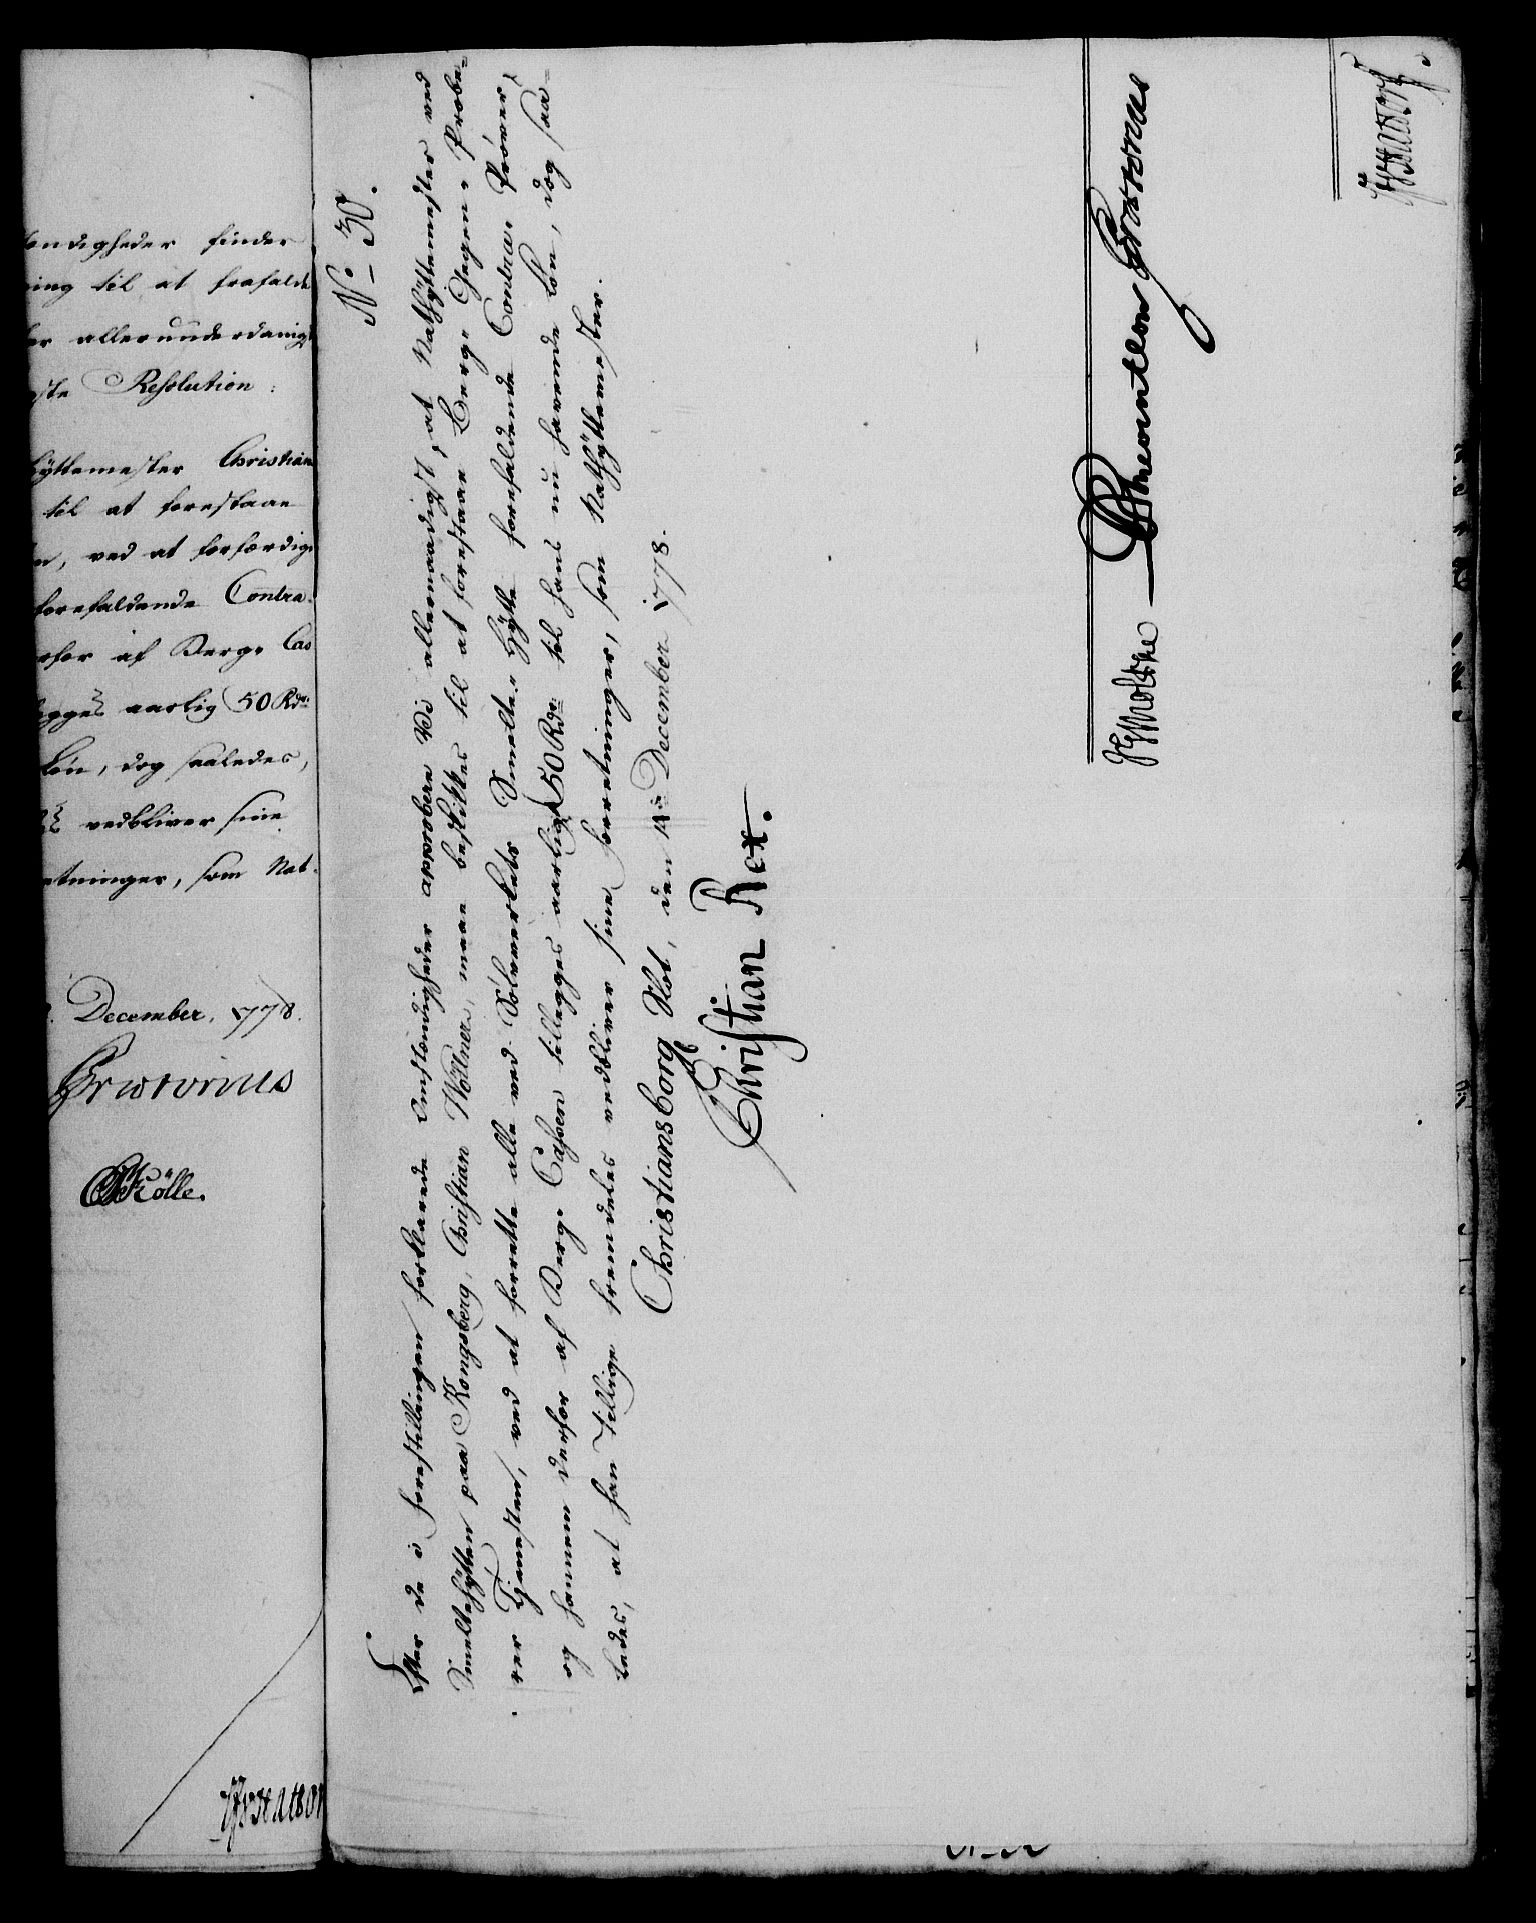 ondigheder finder
ning til at frafalde
for allerunderdanigst
ste Resolution:
hyttemester Christian
til at forestaae
n, ved at forfærdige
forefaldende Contra-
rfor af Berg- Cas
legges aarlig 50 Rdr:
Løn, dog saaledes,
vedbliver sine
etninger, som Nat-
December, 1778.
Prætorius
Kölle.
No 30.
Efter de i Forestillingen forklarede Omstændigheder approbere Vi allernaadigst, at Nathyttemester ved
Smeltehytten paa Kongsberg, Christian Wöllner, maae beskikkes til at forestaae Berg- Gegen- Probe-
rer Tjenesten, ved at forrette alle ved Sølvverkets Smelte- Hytte forefaldende Contra- Prøver,
og hannem derfor af Berg- Cassen tillegges aarlig 50 Rdr: til hans nu havende Løn, dog saa-
ledes, at han tillige fremdeles vedbliver sine Forretninger, som Nathyttemester.
Christiansborg Slot, den 14de December 1778.
Christian Rex.